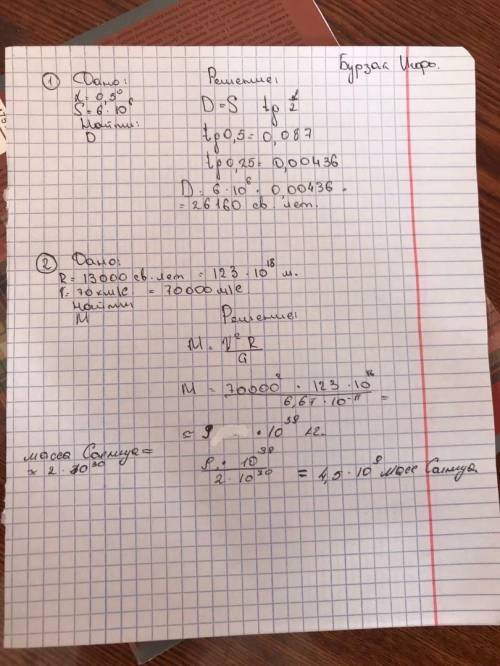 Бурзак Игорь.
① Дано:
α = 0,5°
S = 6 · 10⁶
Найти:
D
Решение:
D = S tg α/2
tg 0,5 = 0,087
tg 0,25 = 0,00436
D = 6 · 10⁶ · 0,00436 =
= 26160 св. лет.
② Дано:
R = 13000 св. лет = 123 · 10¹⁸ м.
V = 70 км/с = 70000 м/с
Найти
M
Решение:
M = V² R / G
M = 70000² · 123 · 10¹⁸ / 6,67 · 10⁻¹¹ =
= 9 · 10³⁹ кг.
масса Солнца =
≈ 2 · 10³⁰
9 · 10³⁹ / 2 · 10³⁰ = 4,5 · 10⁹ масс Солнца